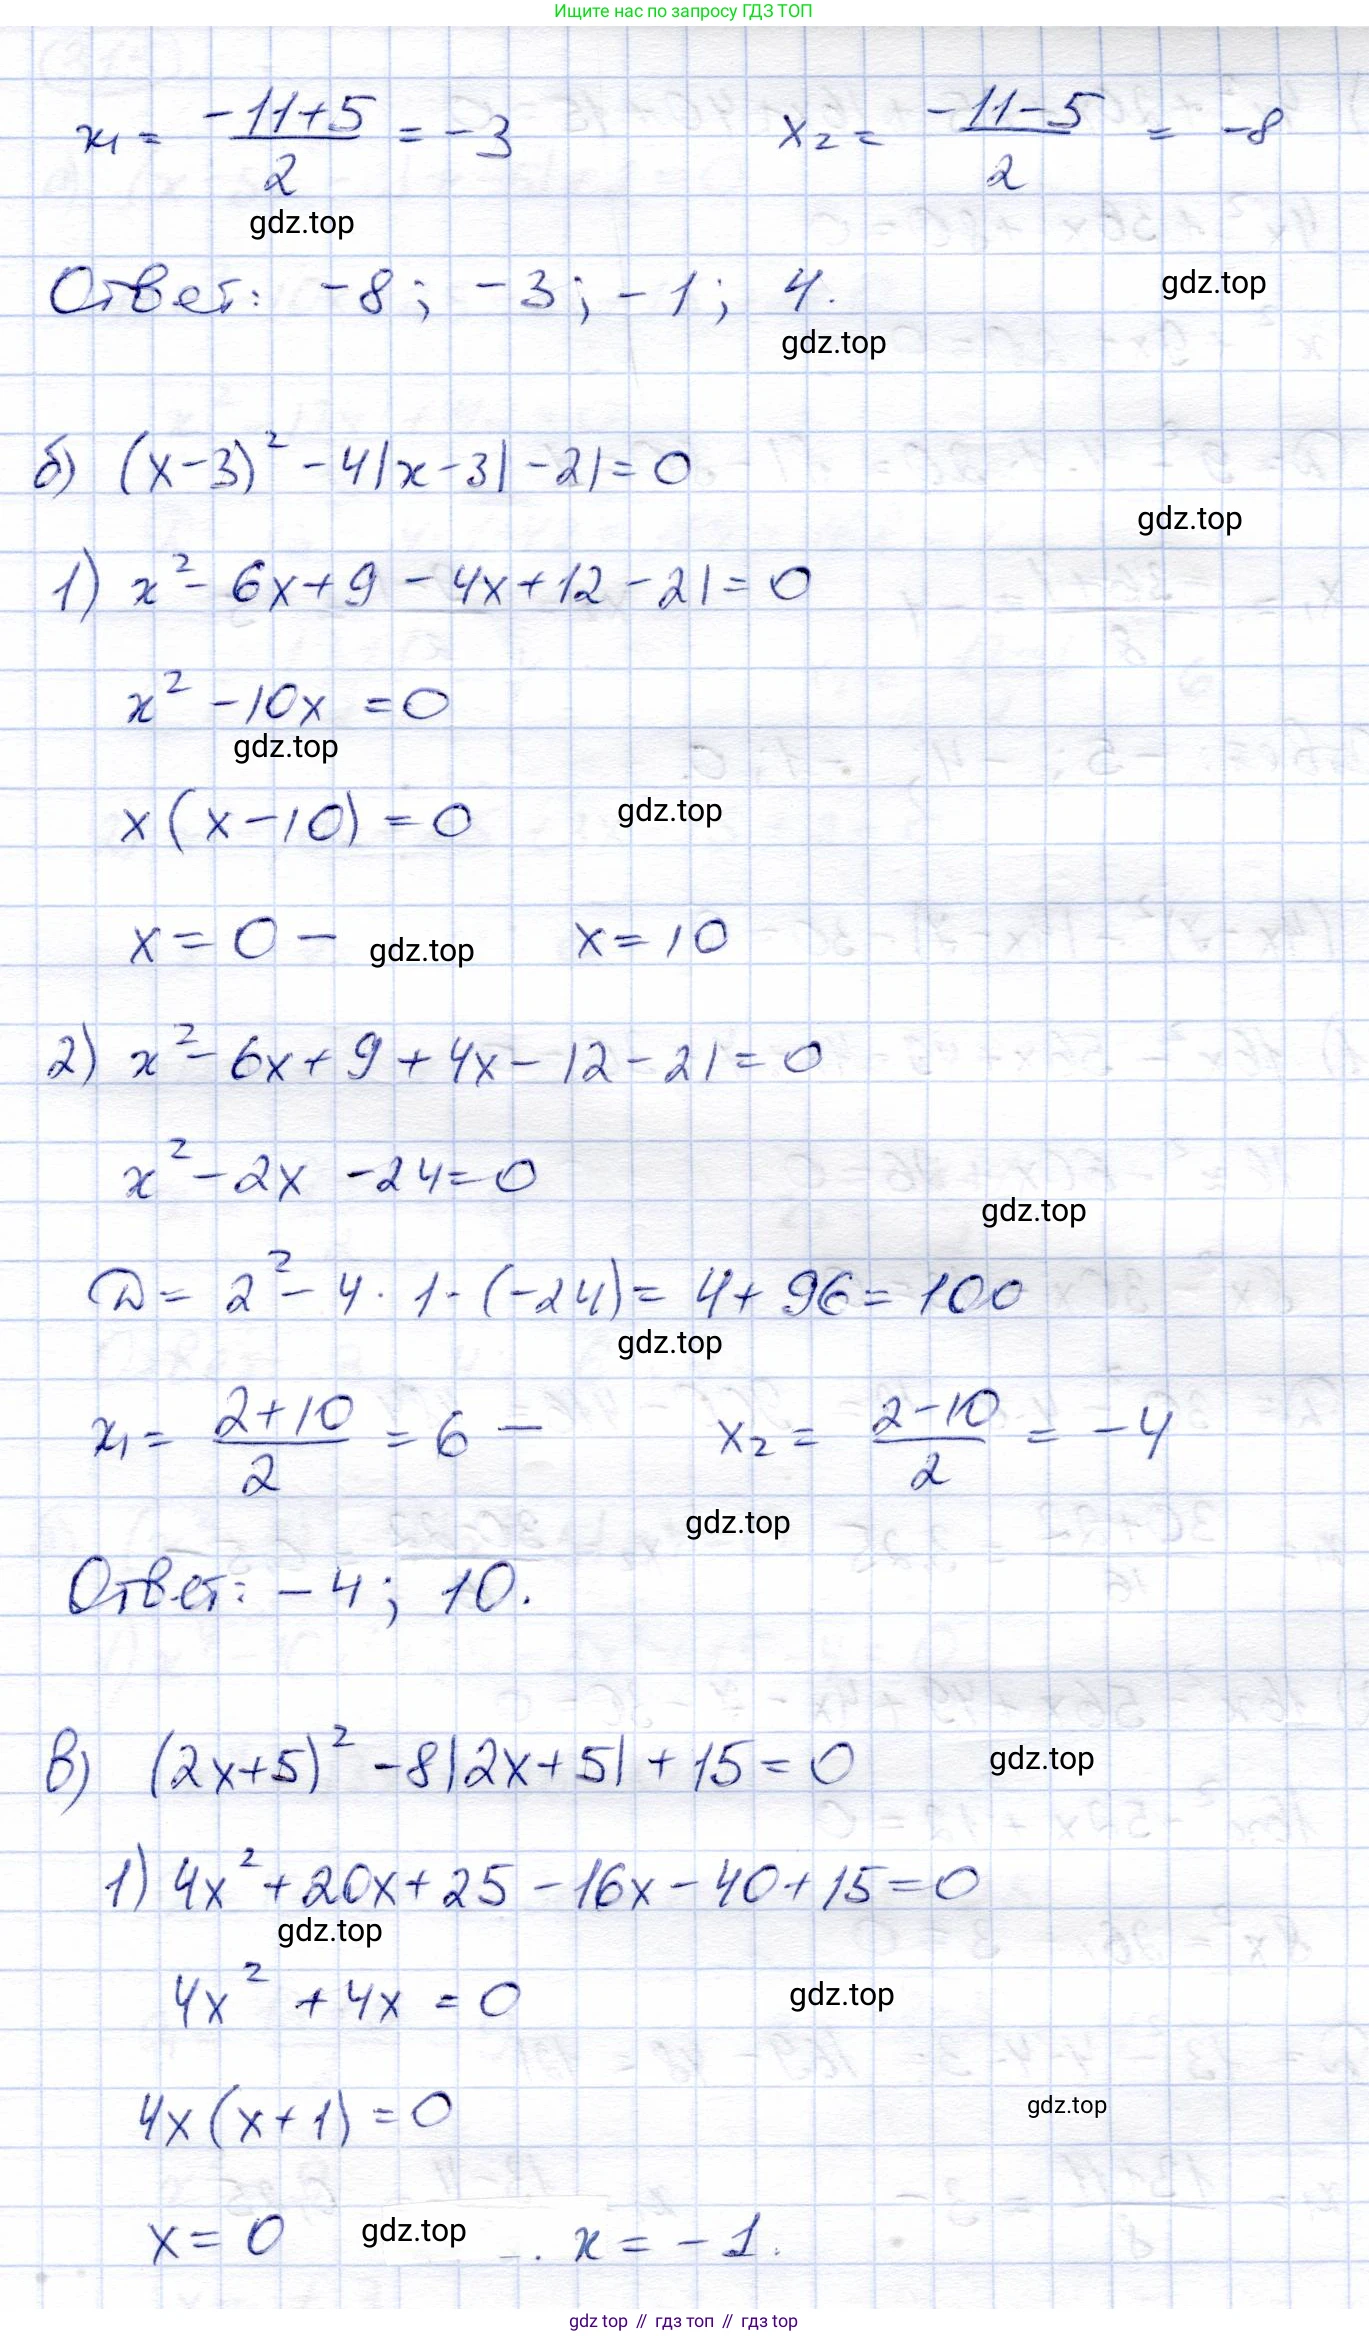 Ищите нас по запросу ГДЗ ТОП
x₁ = (-11+5)/2 = -3    x₂ = (-11-5)/2 = -8
gdz.top
Ответ: -8; -3; -1; 4.    gdz.top
gdz.top
б) (x-3)² - 4|x-3| - 21 = 0
gdz.top
1) x² - 6x + 9 - 4x + 12 - 21 = 0
x² - 10x = 0
gdz.top
x(x-10) = 0    gdz.top
x = 0 –    gdz.top    x = 10
2) x² - 6x + 9 + 4x - 12 - 21 = 0
x² - 2x - 24 = 0
gdz.top
D = 2² - 4 · 1 · (-24) = 4 + 96 = 100
gdz.top
x₁ = (2+10)/2 = 6 –    x₂ = (2-10)/2 = -4
gdz.top
Ответ: -4; 10.
в) (2x+5)² - 8|2x+5| + 15 = 0    gdz.top
1) 4x² + 20x + 25 - 16x - 40 + 15 = 0
gdz.top
4x² + 4x = 0    gdz.top
4x(x+1) = 0    gdz.top
x = 0    gdz.top    x = -1.
gdz top // гдз топ // гдз top